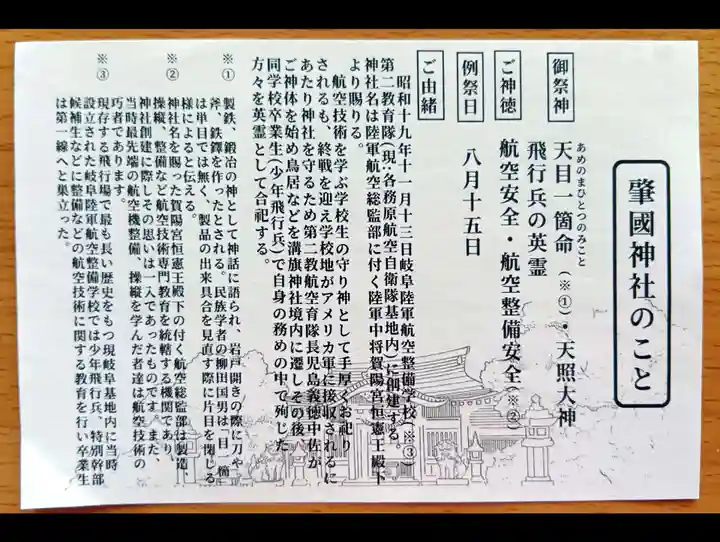 肇國神社のこと
御祭神
あめのまひとつのみこと
天目一箇命（※①）・天照大神
飛行兵の英霊
ご神徳
航空安全・航空整備安全（※②）
例祭日
八月十五日
ご由緒
昭和十九年十一月十三日岐阜陸軍航空整備学校（※③）
第二教育隊（現：各務原航空自衛隊基地内）に創建する。
神社名は陸軍航空総監部に付く陸軍中将賀陽宮恒憲王殿下
より賜りる。
航空技術を学ぶ学校生の守り神として手厚くお祀り
されるも、終戦を迎え学校地がアメリカ軍に接収されるに
あたり神社を守るため第二教航空育隊長児島義徳中佐が
ご神体を始め鳥居などを溝旗神社境内に遷しその後、
同学校卒業生（少年飛行兵）で自身の務めの中で殉じた
方々を英霊として合祀する。
※①
製鉄、鍛冶の神として神話に語られ、岩戸開きの際に刀や
斧、鉄鐸を作ったとされる。民族学者の柳田国男は「目一箇」
は単目では無く、製品の出来具合を見直す際に片目を閉じる
様によると伝える。
※②
神社名を賜った賀陽宮恒憲王殿下の付く航空総監部は製造、
操縦、整備など航空技術専門教育を統轄する機関であり、
神社創建に際しその思いは一入であったものです。また、
当時最先端の航空機整備、操縦を学んだ者達は航空技術の
巧者であります。
※③
現存する飛行場で最も長い歴史をもつ現岐阜基地内に当時
設立された岐阜陸軍航空整備学校では少年飛行兵、特別幹部
候補生などに整備などの航空技術に関する教育を行い卒業生
は第一線へと巣立った。